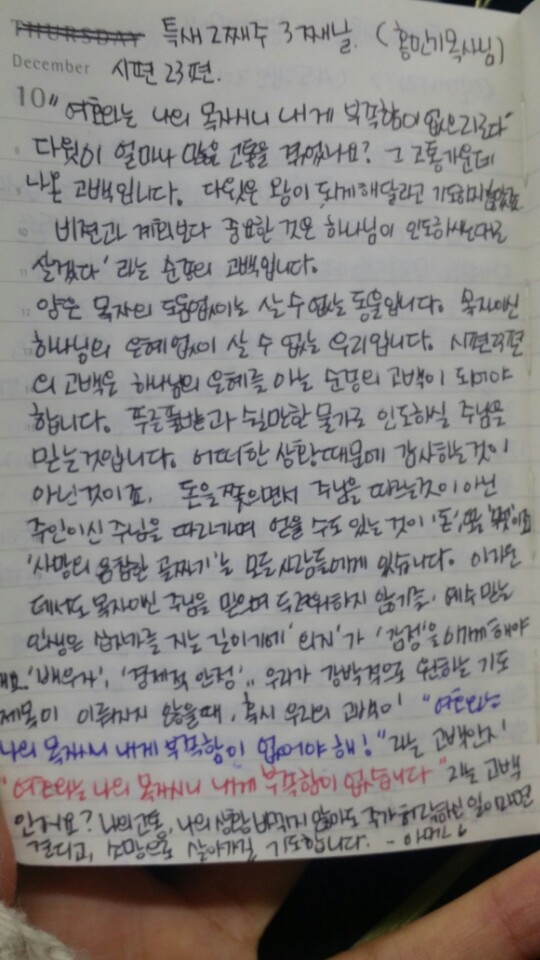 THURSDAY 특새 2째주 3째날. (홍민기목사님)
December 시편 23편.
10 "여호와는 나의 목자시니 내게 부족함이 없으리로다"
다윗이 얼마나 많은 고통을 겪었나요? 그 고통가운데
나온 고백입니다. 다윗은 왕이 되게해달라고 기도하지 않았죠
비젼과 계획보다 중요한 것은 하나님이 인도하시는대로
살겠다' 라는 순종의 고백입니다.
양은 목자의 도움없이는 살 수 없는 동물입니다. 목자이신
하나님의 은혜 없이 살 수 없는 우리입니다. 시편23편
의 고백은 하나님의 은혜를 아는 순종의 고백이 되어야
합니다. 푸른풀밭과 쉴만한 물가로 인도하실 주님을
믿는것입니다. 어떠한 상황때문에 감사하는것이
아닌것이죠. 돈을 쫓으면서 주님을 따르는것이 아닌
주인이신 주님을 따라가며 얻을 수도 있는 것이 '돈',
'사망의 음침한 골짜기'는 모든 사람들에게 있습니다. 이 가운
데서도 목자이신 주님을 믿으며 두려워하지 않기를. 예수 믿는
인생은 십자가를 지는 길이기에 '의지'가 '감정'을 이기게 해야
해요. '배우자', '경제적 안정'.. 우리가 강박적으로 원하는 기도
제목이 이뤄지지 않을때, 혹시 우리의 고백이 "여호와는
나의 목자시니 내게 부족함이 없어야 해!" 라는 고백인지
"여호와는 나의 목자시니 내게 부족함이 없습니다" 라는 고백
인가요? 나의 고통, 나의 상황 바뀌지 않아도 주가 허락하신 일이라면
견디고, 소망으로 살아가길 기도합니다. - 아멘